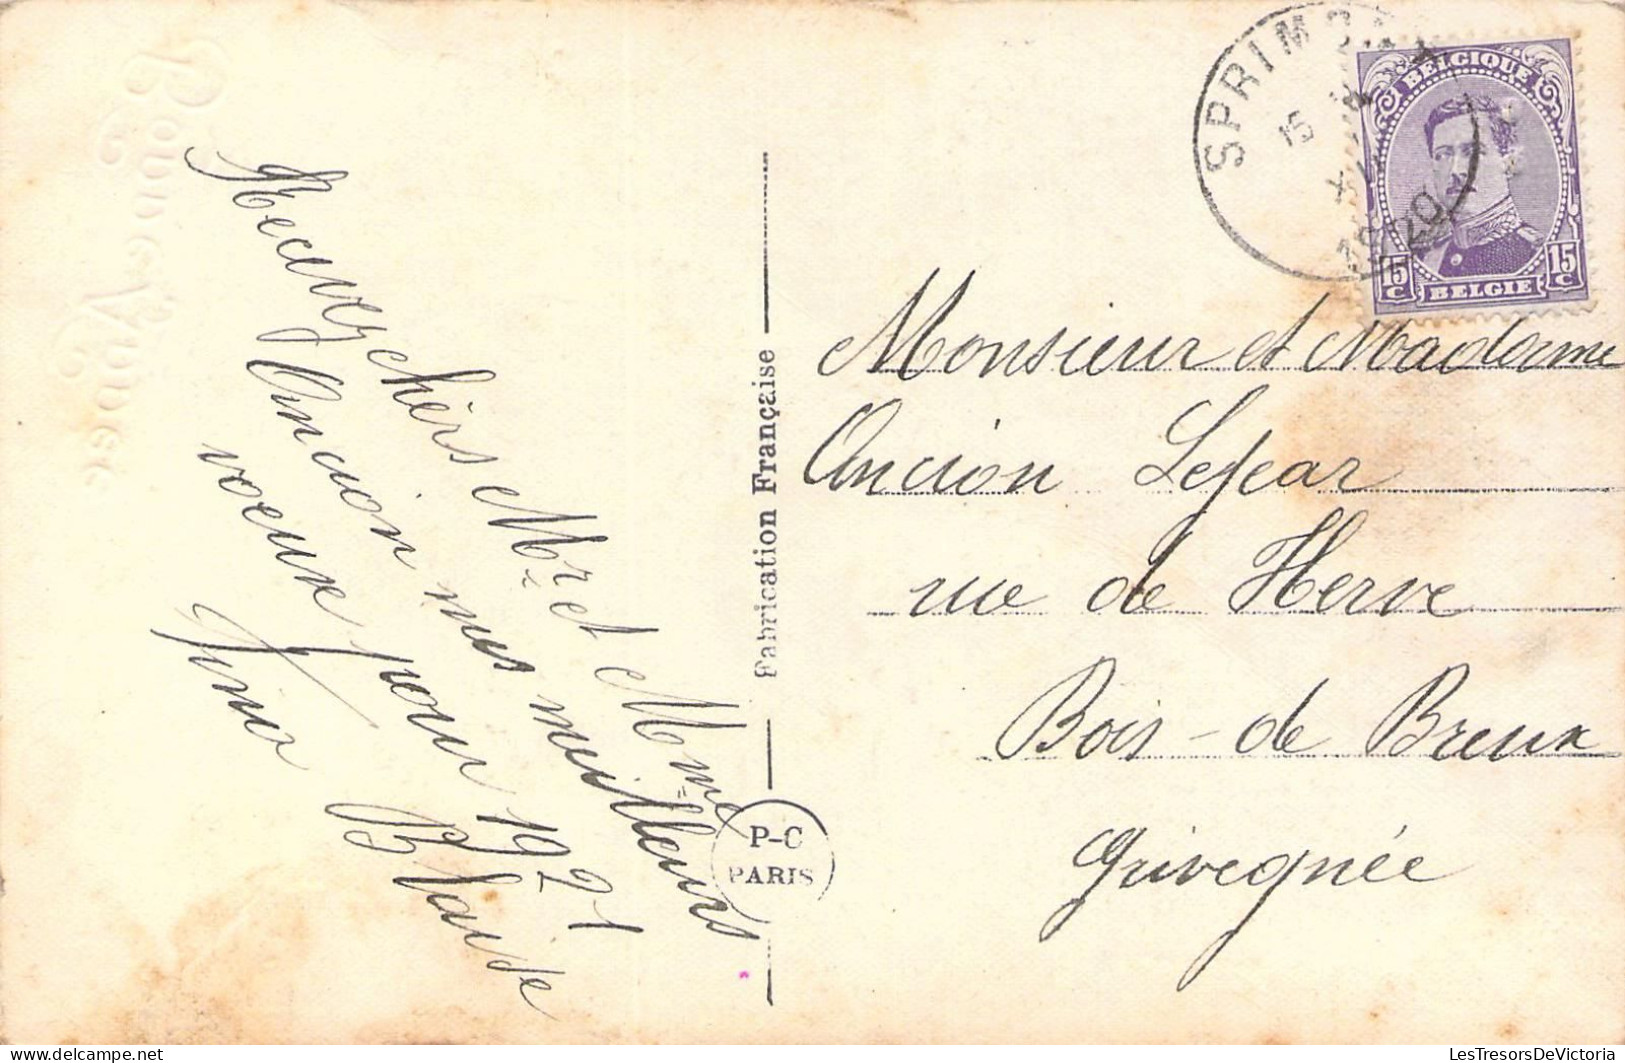 Bonne Année
Recevez chèrs Mr et Mme
Ancion mes meilleurs
voeux pour 1921
Blaise
Fabrication Française
P-C
PARIS
SPRIMONT
15
XII
1920
BELGIQUE
15 C
15 C
BELGIE
Monsieur et Madame
Ancion Lejear
rue de Herve
Bois-de Breux
Grivegnée
www.delcampe.net
LesTresorsDeVictoria